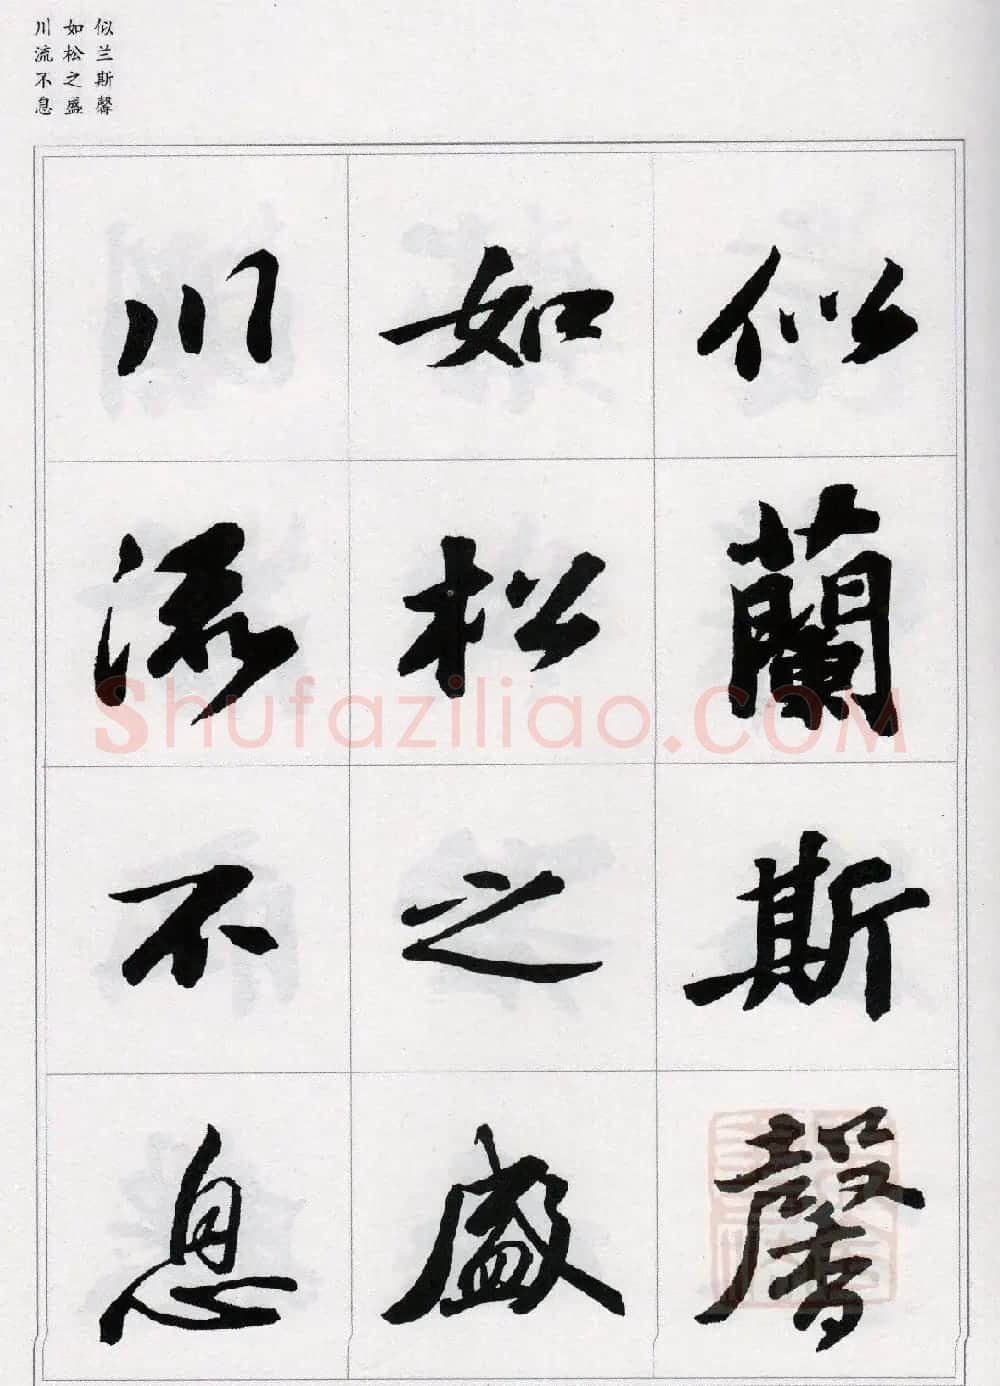 似兰斯馨
如松之盛
川流不息
似蘭斯馨
如松之盛
川流不息
Shufaziliao.COM